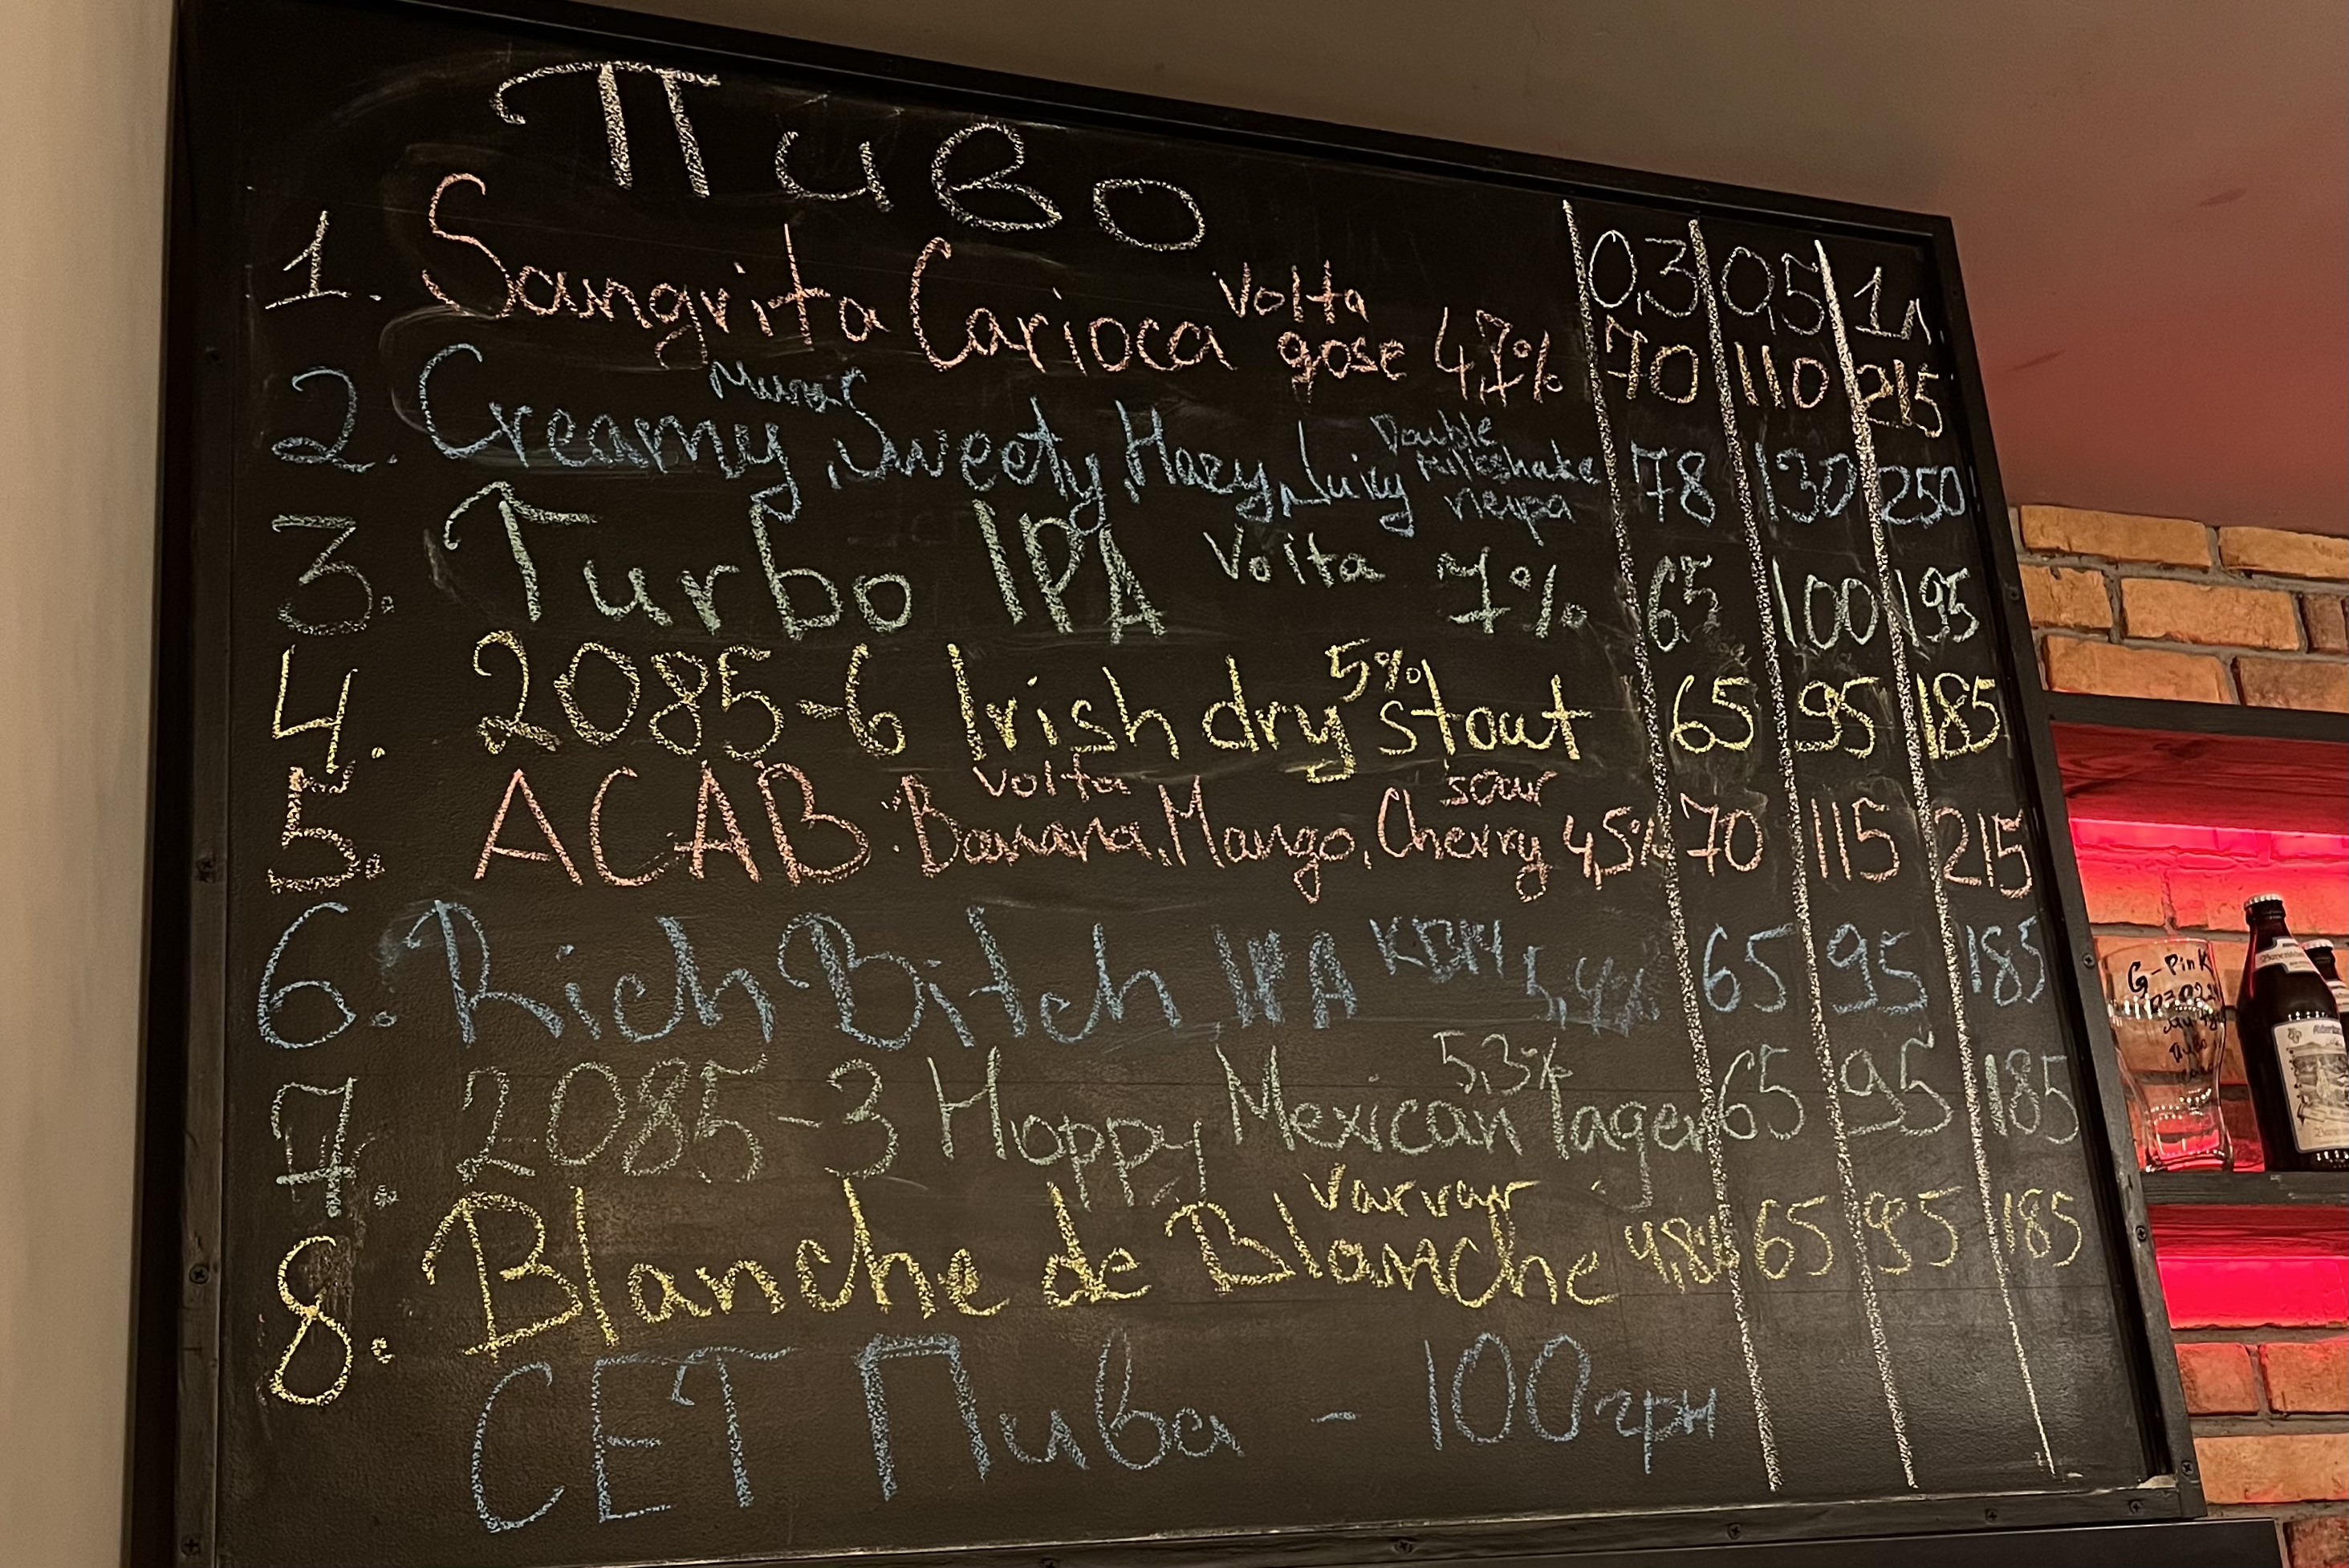 Пиво
0,3 0,5 1л
1. Sangrita Carioca Volta gose 4,7% 70 110 215
2. Creamy, Sweety, Hazy, Juicy Double milkshake neipa 78 130 250
3. Turbo IPA Volta 7% 65 100 195
4. 2085-6 Irish dry stout 5% 65 95 185
5. ACAB: Banana, Mango, Cherry Volta sour 4,5% 70 115 215
6. Rich Bitch IPA 5,4% 65 95 185
7. 2085-3 Hoppy Mexican lager 5,3% 65 95 185
8. Blanche de Blanche Varvar 4,8% 65 95 185
СЕТ Пива - 100грн
G-Pink